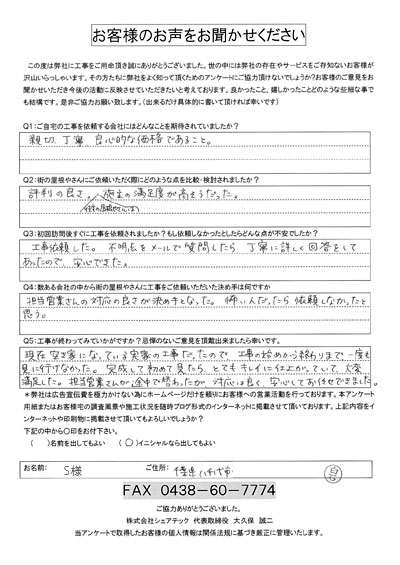 お客様のお声をお聞かせください
この度は弊社に工事をご用命頂き誠にありがとうございました。世の中には弊社の存在やサービスをご存知ないお客様が
沢山いらっしゃいます。その方たちに弊社をよく知って頂くためのアンケートにご協力頂けないでしょうか?お客様のご意見をお
聞かせいただき今後の活動に反映させていただきたいと考えております。良かったこと、嬉しかったことどのような些細な事で
も結構です。是非ご協力お願い致します。(出来るだけ具体的に書いて頂ければ幸いです)
Q1:ご自宅の工事を依頼する会社にはどんなことを期待されていましたか?
親切、丁寧、良心的な価格であること。
Q2:街の屋根やさんにいただく際にどのような点を比較・検討されましたか?
評判の良さ。施主の満足度が高そうだった。
(街の屋根やさんは)
Q3:初回訪問後すぐに工事を依頼されましたか?もし依頼しなかったとしたらどんな点が不安でしたか?
工事依頼した。不明点をメールで質問したら丁寧に詳しく回答をして
あったので、安心できた。
Q4:数ある会社の中から街の屋根やさんに工事をご依頼いただいた決め手は何ですか
担当営業さんの対応の良さが決め手となった。怖い人だったら依頼しなかったと
思う。
Q5:工事が終わってみていかがですか?忌憚のないご意見を頂戴出来ましたら幸いです。
現在空き家になっている実家の工事だったので、工事の始めから終わりまで一度も
見に行けなかった。完成して初めて見たら、とてもキレイに仕上がっていて、大変
満足した。担当営業さんが途中で替わったが、対応は良く、安心してお任せできました。
*弊社は広告宣伝費を極力かけない為にホームページだけを頼りにお客様への営業活動を行っております。本アンケート
用紙またはお客様宅の調査風景や施工状況を随時ブログ形式のインターネットに掲載させて頂いております。上記内容をイ
ンターネットや印刷物に掲載させて頂いてもよろしいでしょうか?
下記の中から〇印をお付下さい。
( )名前を出してもよい (〇)イニシャルなら出してもよい
お名前: S様 ご住所: 千葉県八千代市
FAX 0438-60-7774
ご協力ありがとうございました。
株式会社シェアテック 代表取締役 大久保 誠二
当アンケートで取得したお客様の個人情報は関係法規に基づき厳正に管理いたします。